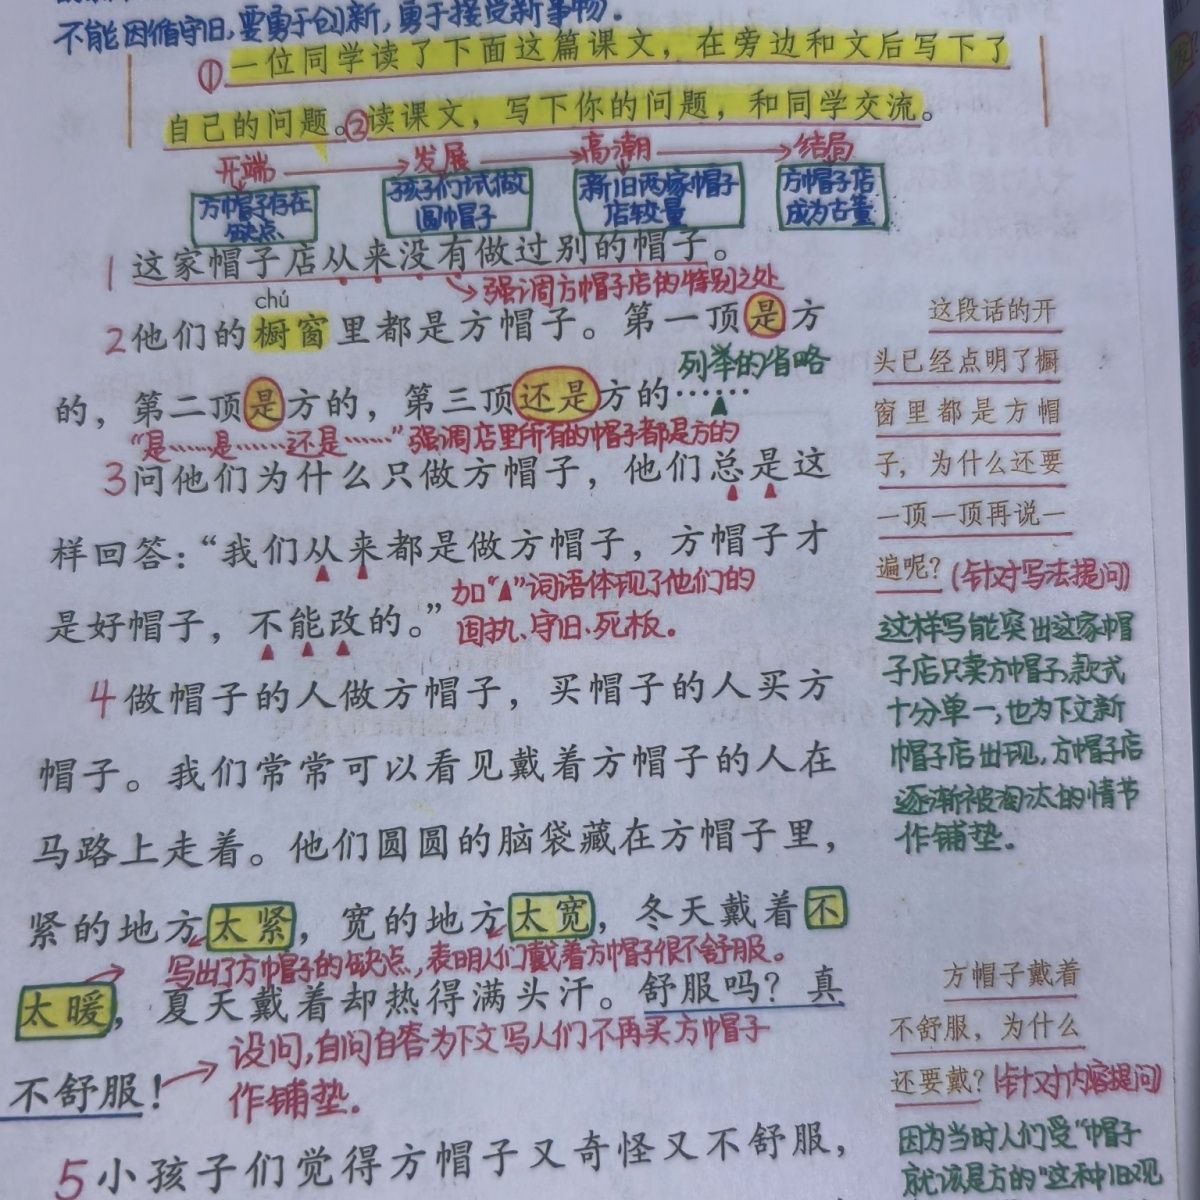 不能因循守旧,要勇于创新,勇于接受新事物.
①一位同学读了下面这篇课文，在旁边和文后写下了
自己的问题。②读课文，写下你的问题，和同学交流。
开端 发展 高潮 结局
方帽子存在
缺点
孩子们试做
圆帽子
新旧两家帽子
店较量
方帽子店
成为古董
1 这家帽子店从来没有做过别的帽子。
强调方帽子店的特别之处
chú
2 他们的橱窗里都是方帽子。第一顶是方
列举的省略
的，第二顶是方的，第三顶还是方的……
“是……是……还是……”强调店里所有的帽子都是方的
3 问他们为什么只做方帽子，他们总是这
样回答：“我们从来都是做方帽子，方帽子才
加“▲”词语体现了他们的
是好帽子，不能改的。”
固执、守旧、死板.
4 做帽子的人做方帽子，买帽子的人买方
帽子。我们常常可以看见戴着方帽子的人在
马路上走着。他们圆圆的脑袋藏在方帽子里，
紧的地方太紧，宽的地方太宽，冬天戴着不
写出了方帽子的缺点,表明人们戴着方帽子很不舒服。
太暖，夏天戴着却热得满头汗。舒服吗？真
设问,自问自答为下文写人们不再买方帽子
不舒服！
作铺垫.
5 小孩子们觉得方帽子又奇怪又不舒服，
这段话的开
头已经点明了橱
窗里都是方帽
子，为什么还要
一顶一顶再说一
遍呢？(针对写法提问)
这样写能突出这家帽
子店只卖方帽子,款式
十分单一,也为下文新
帽子店出现,方帽子店
逐渐被淘汰的情节
作铺垫.
方帽子戴着
不舒服，为什么
还要戴？(针对内容提问)
因为当时人们受“帽子
就该是方的”这种旧观